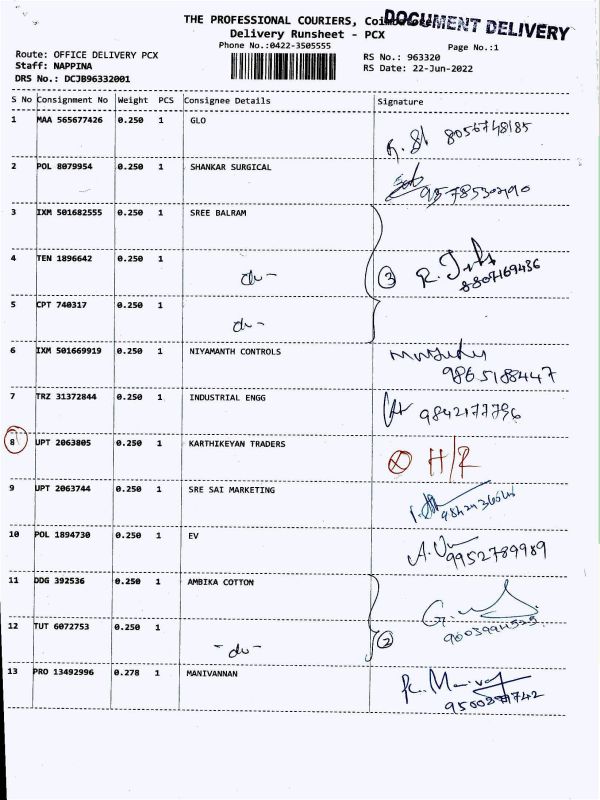 THE PROFESSIONAL COURIERS,
DOCUMENT DELIVERY
Delivery Runsheet - PCX
Phone No.:0422-3505555
Page No.:1
Route: OFFICE DELIVERY PCX
RS No.: 963320
Staff: NAPPINA
RS Date: 22-Jun-2022
DRS No.: DCJB96332001
S No Consignment No Weight PCS Consignee Details Signature
1 MAA 565677426 0.250 1 GLO 8056748185
2 POL 8079954 0.250 1 SHANKAR SURGICAL
3 IXM 501682555 0.250 1 SREE BALRAM
4 TEN 1896642 0.250 1 - do - 3 8807169436
5 CPT 740317 0.250 1 do -
6 IXM 501669919 0.250 1 NIYAMANTH CONTROLS 9865188447
7 TRZ 31372844 0.250 1 INDUSTRIAL ENGG 9842177796
8 UPT 2063805 0.250 1 KARTHIKEYAN TRADERS H/R
9 UPT 2063744 0.250 1 SRE SAI MARKETING
10 POL 1894730 0.250 1 EV 9952789989
11 DDG 392536 0.250 1 AMBIKA COTTON
12 TUT 6072753 0.250 1 - do - 2
13 PRO 13492996 0.278 1 MANIVANNAN